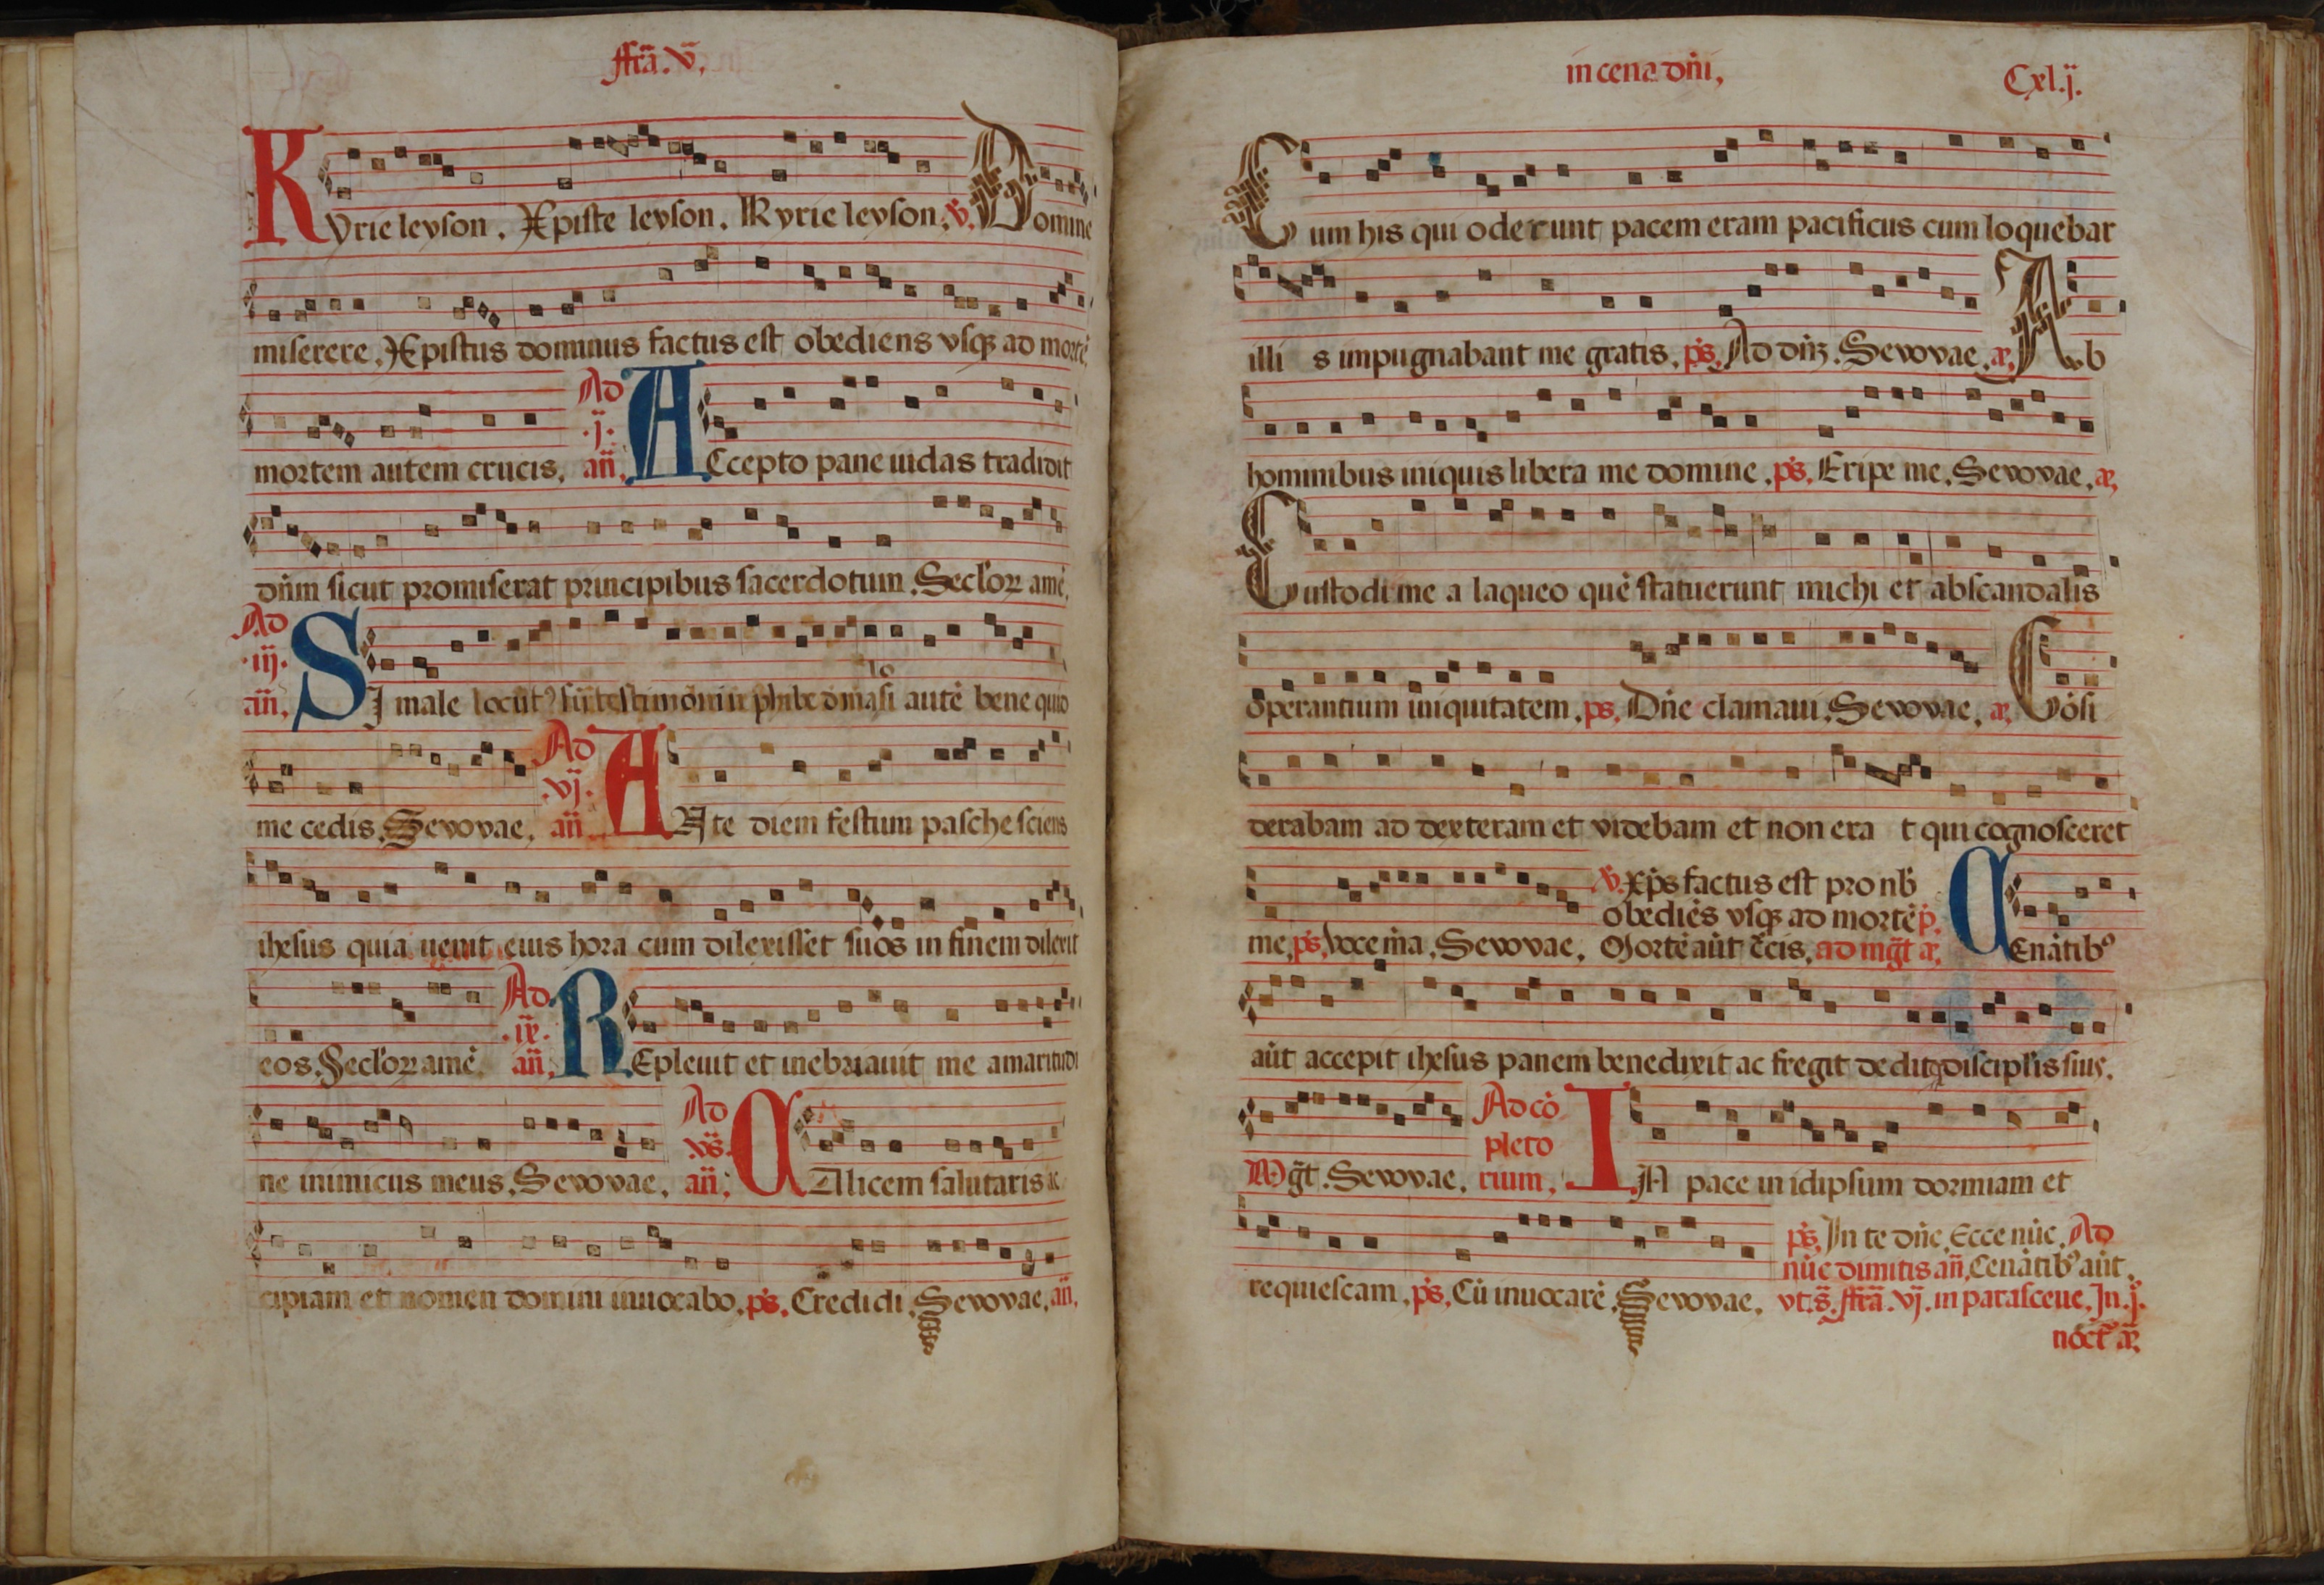 ffrã. v̄.
Kyrie leyson. Xpiste leyson. Kyrie leyson. v̄. Domine
miserere. Xpistus dominus factus est obediens vsqꝫ ad mortē.
mortem autem crucis. Ad .j. añ. ACcepto pane iudas tradidit
dn̄m sicut promiserat principibus sacerdotum. Seclorꝫ amē.
Ad .iij. añ. SI male locut9 sū testimoniū phibe de malo si autē bene quid
me cedis. Sevovae. Ad .vj. añ. ANte diem festum pasche sciens
ihesus quia uenit eius hora cum dilexisset suos in finem dilexit
eos. Seclorꝫ amē. Ad .ix. añ. REpleuit et inebriauit me amaritudi
ne inimicus meus. Sevovae. Ad vs̄. añ. CAlicem salutaris ac
cipiam et nomen domini inuocabo. ps̄. Credidi. Sevovae. añ.
in cena dn̄i,
Cxl.ij.
Cum his qui oderunt pacem eram pacificus cum loquebar
illi s impugnabant me gratis. ps̄. Ad dn̄ꝫ. Sevovae. añ. Ab
hominibus iniquis libera me domine. ps̄. Eripe me. Sevovae. añ.
Custodi me a laqueo quē statuerunt michi et abscandalis
operantium iniquitatem. ps̄. Dn̄e clamaui. Sevovae. añ. Cōsi
derabam ad dexteram et videbam et non era t qui cognosceret
me. ps̄. Voce m̄a. Sevovae. v̄. xp̄s factus est pro nb̄ obediēs vsqꝫ ad mortē p̄. Mortē aūt c̄cis. ad mḡt añ. CEnātib9
aūt accepit ihesus panem benedixit ac fregit deditqꝫ discipl̄is suis.
Mḡt. Sevovae. Ad cō pleto rium, IN pace in idipsum dormiam et
requiescam. ps̄. Cū inuocarē. Sevovae. ps̄. In te dn̄e. Ecce nūc. Ad
nūc dimitis añ. Cenātib9 aūt.
vt. s̄. ffrã. vj. in parasceue. In .j.
noct̄ añ.